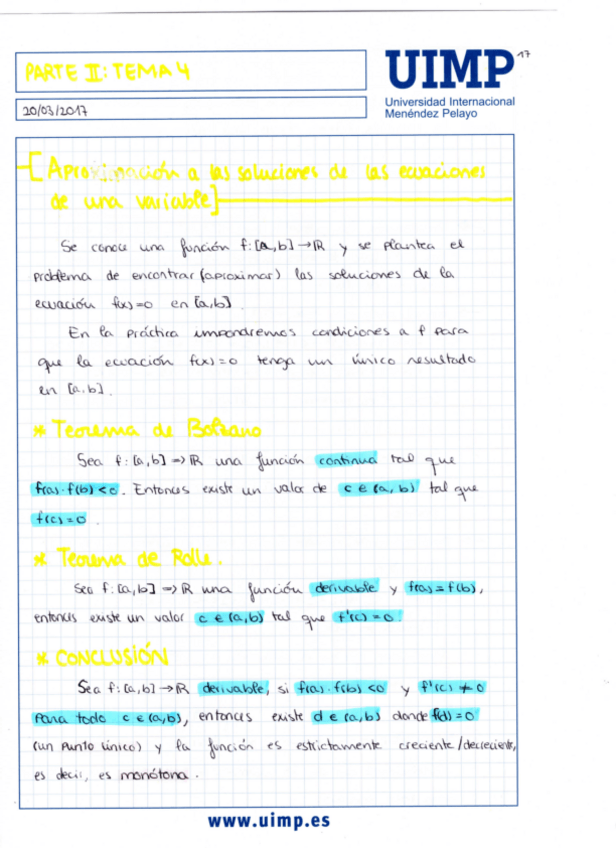 PARTE II: TEMA 4
UIMP
17
Universidad Internacional
Menéndez Pelayo
20/03/2017
[Aproximación a las soluciones de las ecuaciones
de una variable]
Se conoce una función f: [a,b] → ℝ y se plantea el
problema de encontrar (aproximar) las soluciones de la
ecuación f(x)=0 en [a,b].
En la práctica impondremos condiciones a f para
que la ecuación f(x)=0 tenga un único resultado
en [a,b].
* Teorema de Bolzano
Sea f: [a,b] => ℝ una función continua tal que
f(a)·f(b)<0. Entonces existe un valor de c ∈ (a,b) tal que
f(c)=0.
* Teorema de Rolle.
Sea f: [a,b] => ℝ una función derivable y f(a)=f(b),
entonces existe un valor c ∈ (a,b) tal que f'(c)=0.
* CONCLUSIÓN
Sea f: [a,b] → ℝ derivable, si f(a)·f(b)<0 y f'(c) ≠ 0
para todo c ∈ (a,b), entonces existe d ∈ (a,b) donde f(d)=0
(un punto único) y la función es estrictamente creciente/decreciente,
es decir, es monótona.
www.uimp.es